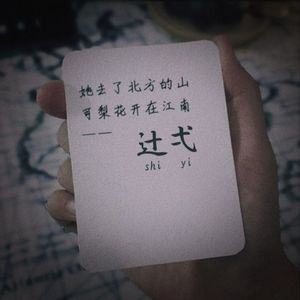 她去了北方的山
可梨花开在江南
——
辻弌
shi yi